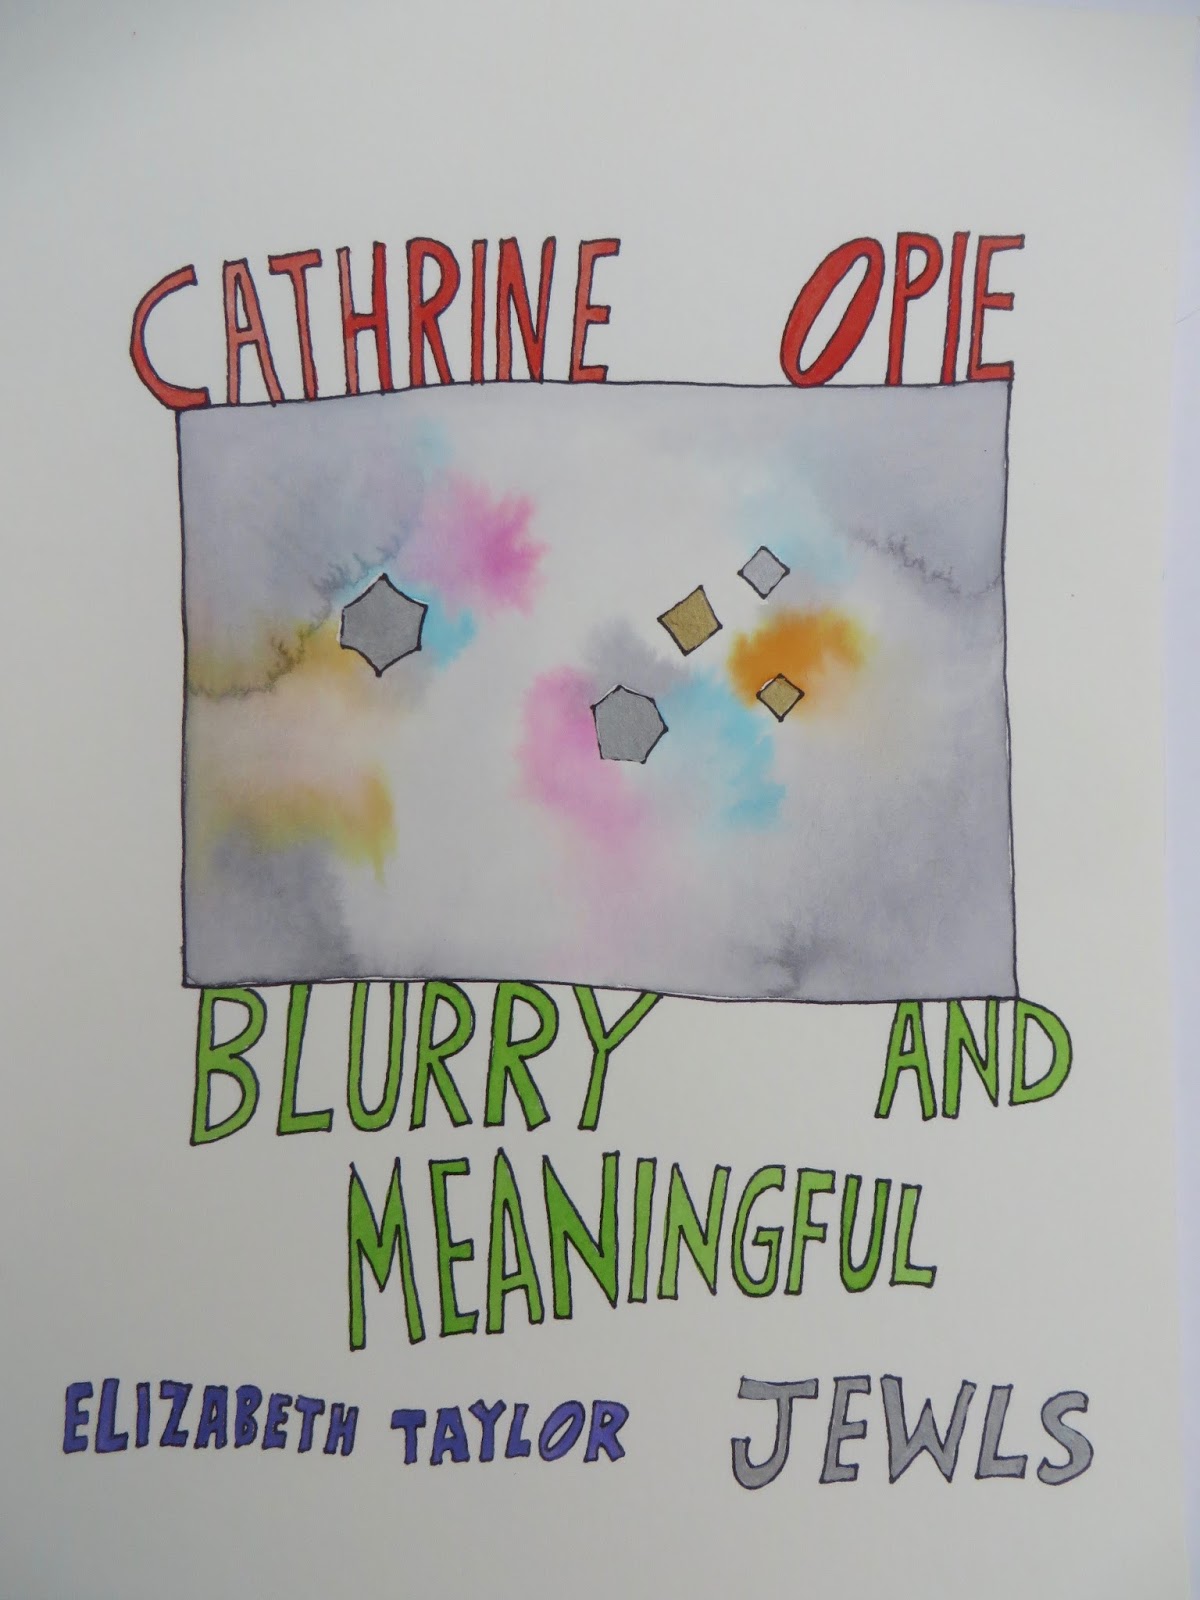 CATHRINE OPIE
BLURRY AND
MEANINGFUL
ELIZABETH TAYLOR JEWLS